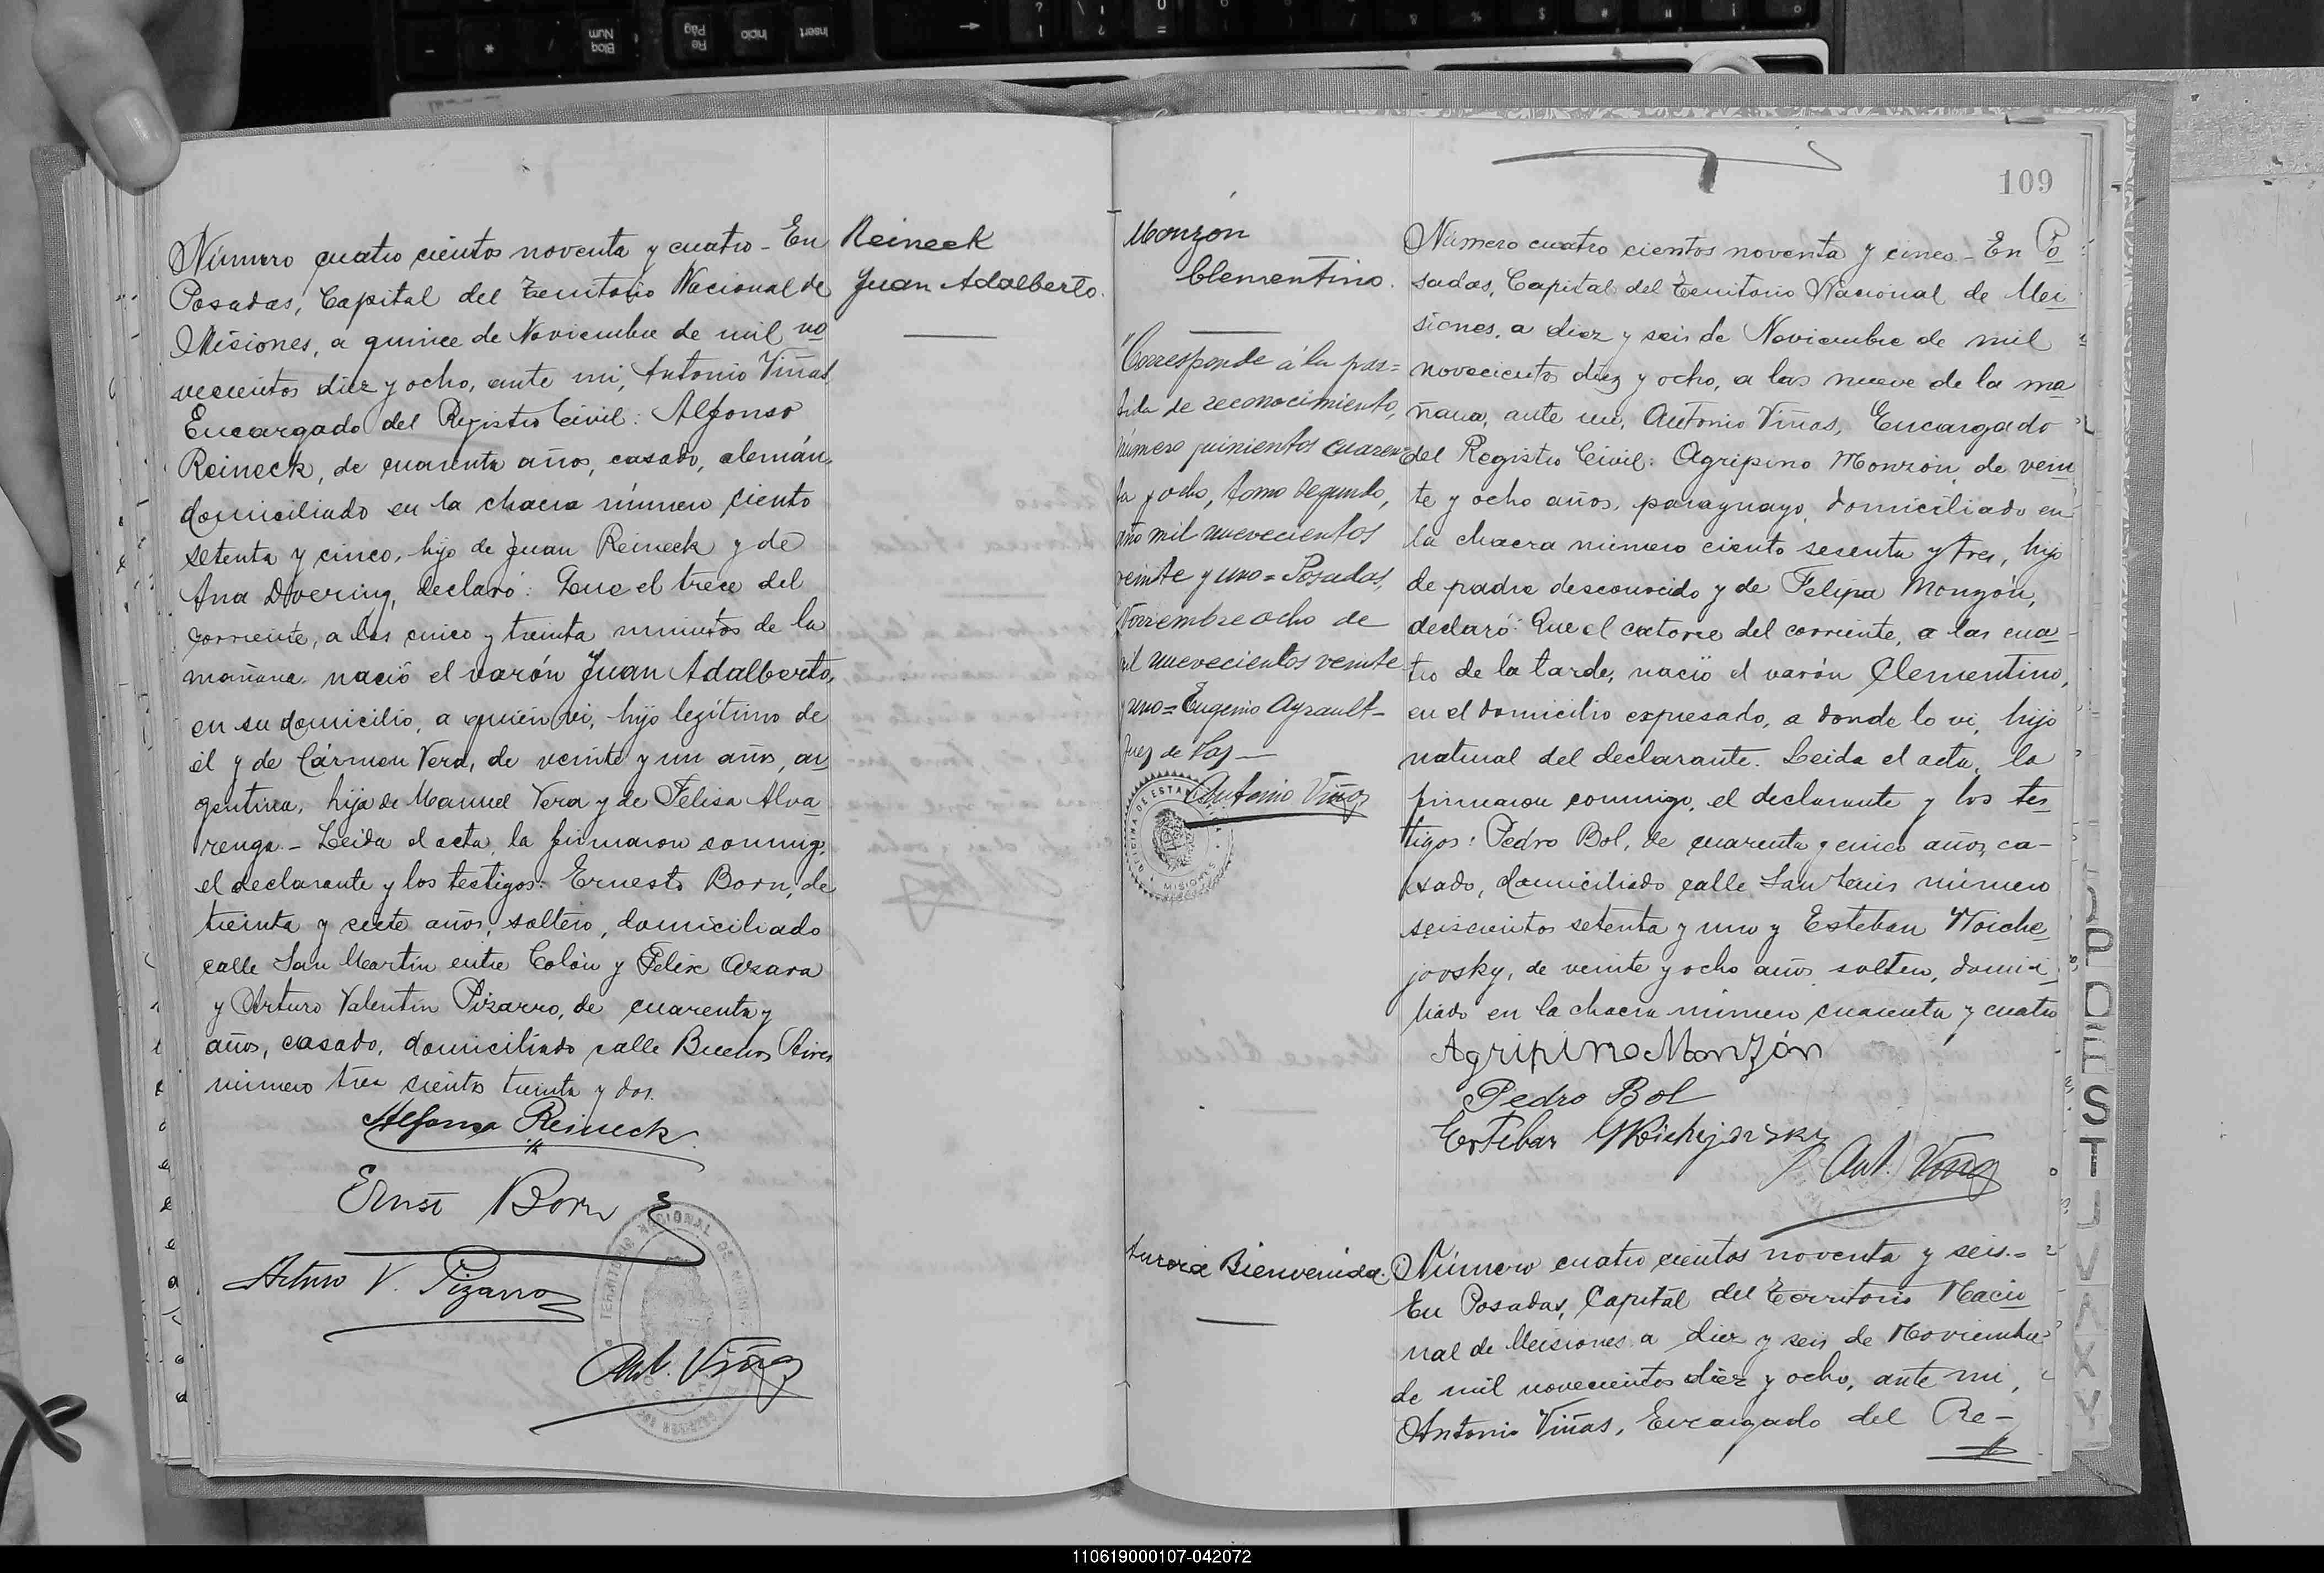 Número cuatro cientos noventa y cuatro - En
Posadas, Capital del Territorio Nacional de
Misiones, a quince de Noviembre de mil no
vecientos diez y ocho, ante mi, Antonio Viñas
Encargado del Registro Civil: Alfonso
Reineck, de cuarenta años, casado, alemán,
domiciliado en la chacra número ciento
setenta y cinco, hijo de Juan Reineck y de
Ana Dvering, declaró: Que el trece del
corriente, a las cinco y treinta minutos de la
mañana nació el varón Juan Adalberto,
en su domicilio, a quien vi, hijo legítimo de
él y de Cármen Vera, de veinte y un años, ar
gentina, hija de Manuel Vera y de Felisa Alva
renga. - Leida el acta, la firmaron conmigo,
el declarante y los testigos: Ernesto Born, de
treinta y siete años, soltero, domiciliado
calle San Martín entre Colón y Félix Azara
y Arturo Valentín Pizarro, de cuarenta y
años, casado, domiciliado calle Buenos Aires
número tres ciento treinta y dos.
Alfonso Reineck
Ernst Born
Arturo V. Pizarro
Ant. Viñas
Reineck
Juan Adalberto.
109
Monzón
Clementino.
"Corresponde á la par=
tida de reconocimiento,
número quinientos cuaren=
ta y ocho, tomo segundo,
año mil nuevecientos
veinte y uno = Posadas,
Noviembre ocho de
mil nuevecientos veinte
y uno = Eugenio Ayrault -
Juez de Paz -
Antonio Viñas
OFICINA DE ESTA
MISIONES
Número cuatro cientos noventa y cinco - En Po
sadas, Capital del Territorio Nacional de Mi
siones, a diez y seis de Noviembre de mil
novecientos diez y ocho, a las nueve de la ma
ñana, ante mi, Antonio Viñas, Encargado
del Registro Civil: Agripino Monzón, de vein
te y ocho años, paraguayo, domiciliado en
la chacra número ciento sesenta y tres, hijo
de padre desconocido y de Felipa Monzón,
declaró: Que el catorce del corriente, a las cua
tro de la tarde, nació el varón Clementino,
en el domicilio expresado, a donde lo vi, hijo
natural del declarante. Leida el acta, la
firmaron conmigo, el declarante y los tes
tigos: Pedro Bol, de cuarenta y cinco años, ca-
sado, domiciliado calle San Luis número
seiscientos setenta y uno y Esteban Woiche
jovsky, de veinte y ocho años, soltero, domici
liado en la chacra número cuarenta y cuatro
Agripino Monzón
Pedro Bol
Esteban
Ant. Viñas
Aurora Bienvenida.
Número cuatro cientos noventa y seis. -
En Posadas, Capital del Territorio Nacio
nal de Misiones a diez y seis de Noviembre
de mil novecientos diez y ocho, ante mi,
Antonio Viñas, Encargado del Re-
P
D
E
S
T
U
V
X
Y
110619000107-042072